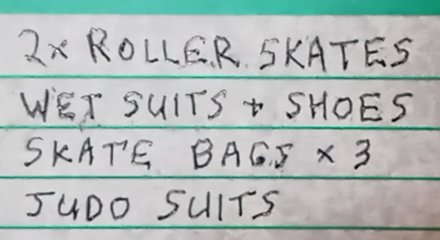 2x ROLLER SKATES
WET SUITS + SHOES
SKATE BAGS x 3
JUDO SUITS